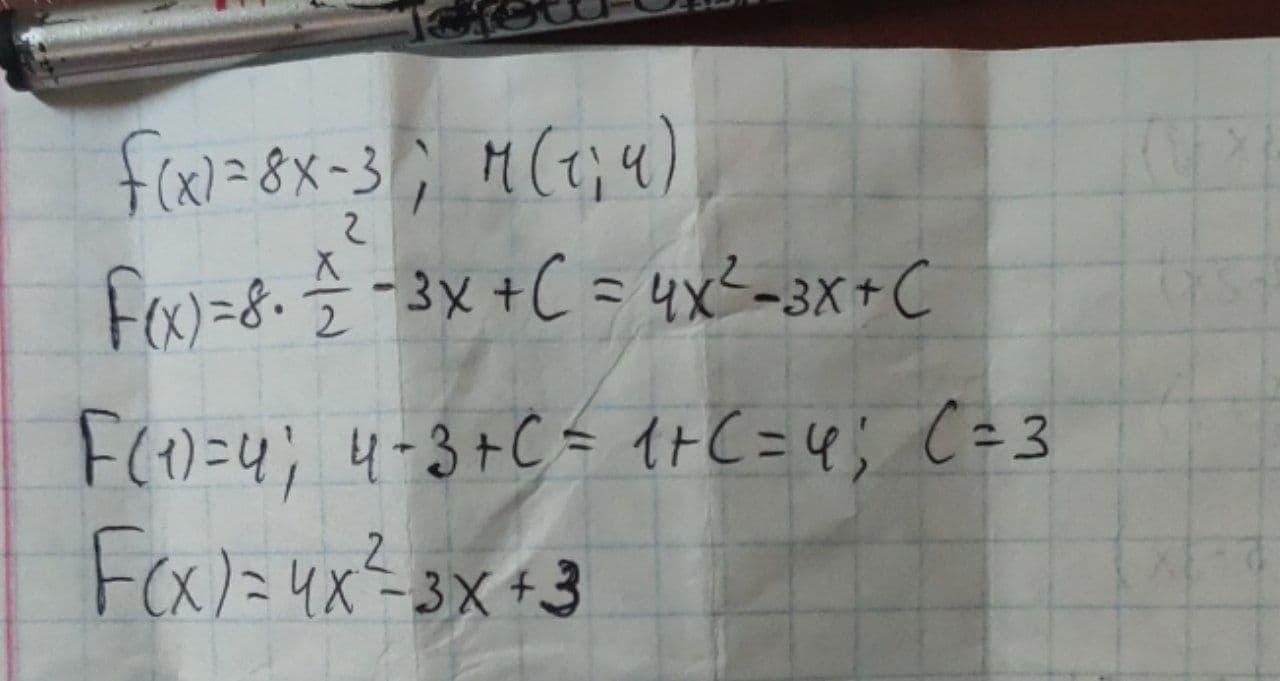 f(x)=8x-3; M(1;4)
F(x)=8·x²/2-3x+C=4x²-3x+C
F(1)=4; 4-3+C=1+C=4; C=3
F(x)=4x²-3x+3